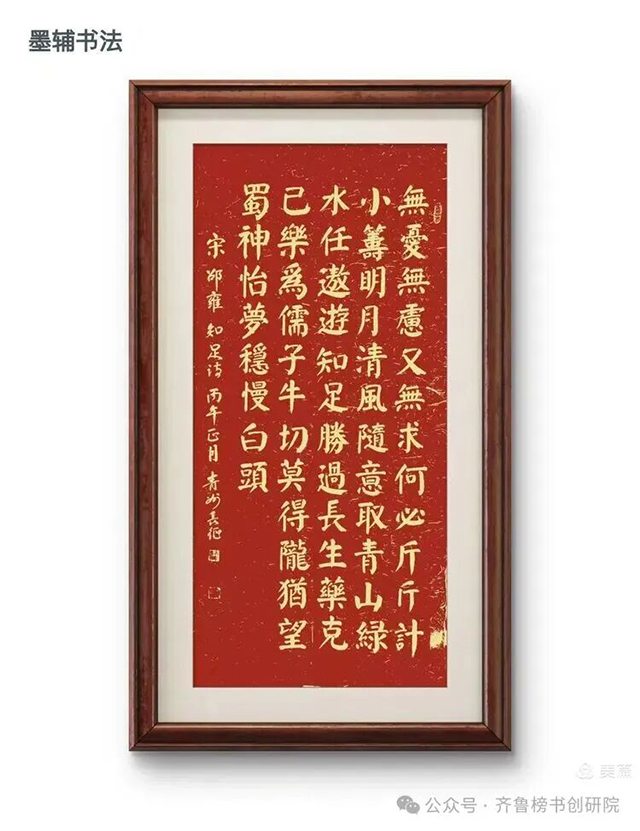 墨辅书法
無憂無慮又無求何必斤斤計
小籌明月清風隨意取青山緑
水任遨遊知足勝過長生藥克
己樂爲儒子牛切莫得隴猶望
蜀神怡夢穩慢白頭
宋邵雍知足诗丙午正月青州長征
美篇
公众号·齐鲁榜书创研院